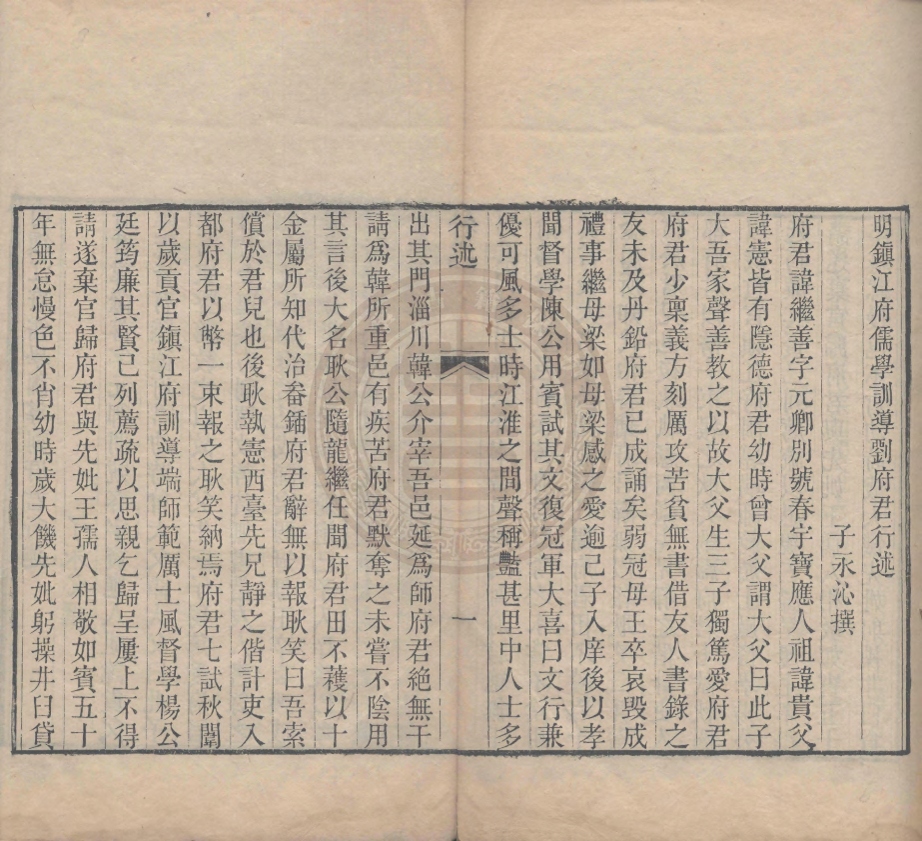 明鎮江府儒學訓導劉府君行述
子永沁撰
府君諱繼善字元卿別號春宇寶應人祖諱貴父
諱憲皆有隱德府君幼時曾大父謂大父曰此子
大吾家聲善教之以故大父生三子獨篤愛府君
府君少稟義方刻厲攻苦貧無書借友人書錄之
友未及丹鉛府君已成誦矣弱冠母王卒哀毀成
禮事繼母梁如母梁感之愛逾己子入庠後以孝
聞督學陳公用賓試其文復冠軍大喜曰文行兼
優可風多士時江淮之間聲稱豔甚里中人士多
行述
一
出其門淄川韓公介宰吾邑延爲師府君絶無干
請爲韓所重邑有疾苦府君默奪之未嘗不陰用
其言後大名耿公隨龍繼任聞府君田不穫以十
金屬所知代治畚鍤府君辭無以報耿笑曰吾索
償於君兒也後耿執憲西臺先兄靜之偕計吏入
都府君以幣一束報之耿笑納焉府君七試秋闈
以歲貢官鎮江府訓導端師範厲士風督學楊公
廷筠廉其賢已列薦疏以思親乞歸呈屢上不得
請遂棄官歸府君與先妣王孺人相敬如賓五十
年無怠慢色不肖幼時歲大饑先妣躬操井臼貸